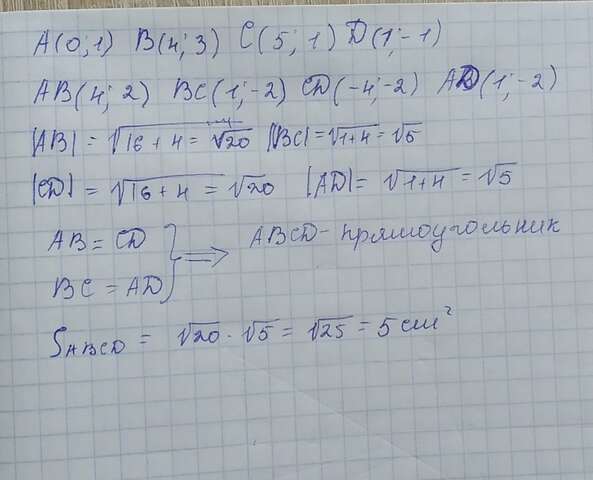 A(0;1) B(4;3) C(5;1) D(1;-1)
AB(4;2) BC(1;-2) CD(-4;-2) AD(1;-2)
|AB| = √16+4 = √20 |BC| = √1+4 = √5
|CD| = √16+4 = √20 |AD| = √1+4 = √5
AB = CD
BC = AD } ⇒ ABCD - прямоугольник
S ABCD = √20 · √5 = √25 = 5 см²